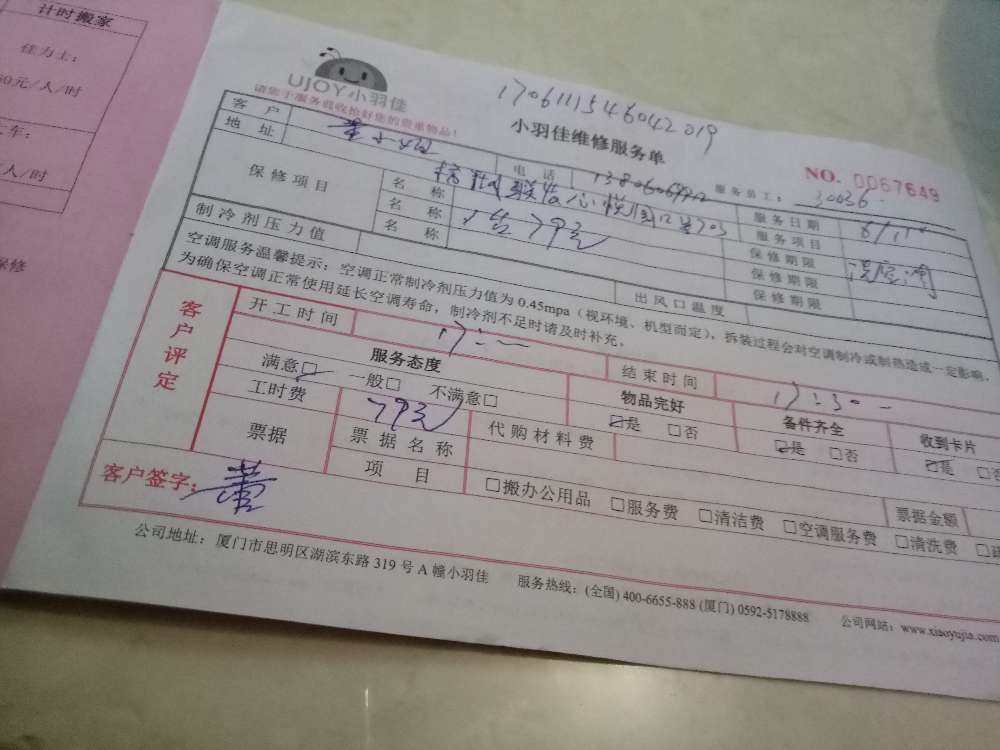 计时搬家
佳力士:
元/人/时
车:
人/时
保修
UJOY小羽佳
请您于服务验收检好您的贵重物品!
1706111546042019
小羽佳维修服务单
NO. 0067649
客户 电话 服务员工: 30036
地址 服务日期 6/11
保修项目 名称 服务项目
名称 1台 79元 保修期限
名称 保修期限
制冷剂压力值 出风口温度 保修期限
空调服务温馨提示:空调正常制冷剂压力值为 0.45mpa(视环境、机型而定),拆装过程会对空调制冷或制热造成一定影响,
为确保空调正常使用延长空调寿命,制冷剂不足时请及时补充。
客户评定
开工时间 结束时间
服务态度 物品完好 备件齐全 收到卡片
满意☑ 一般□ 不满意□ ☑是 □否 ☑是 □否 ☑是 □否
工时费 79元 代购材料费
票据 票据名称 票据金额
项目 □搬办公用品 □服务费 □清洁费 □空调服务费 □清洗费
客户签字: 董
公司地址:厦门市思明区湖滨东路 319 号 A 幢小羽佳 服务热线:(全国) 400-6655-888 (厦门) 0592-5178888 公司网站:www.xiaoyujia.com